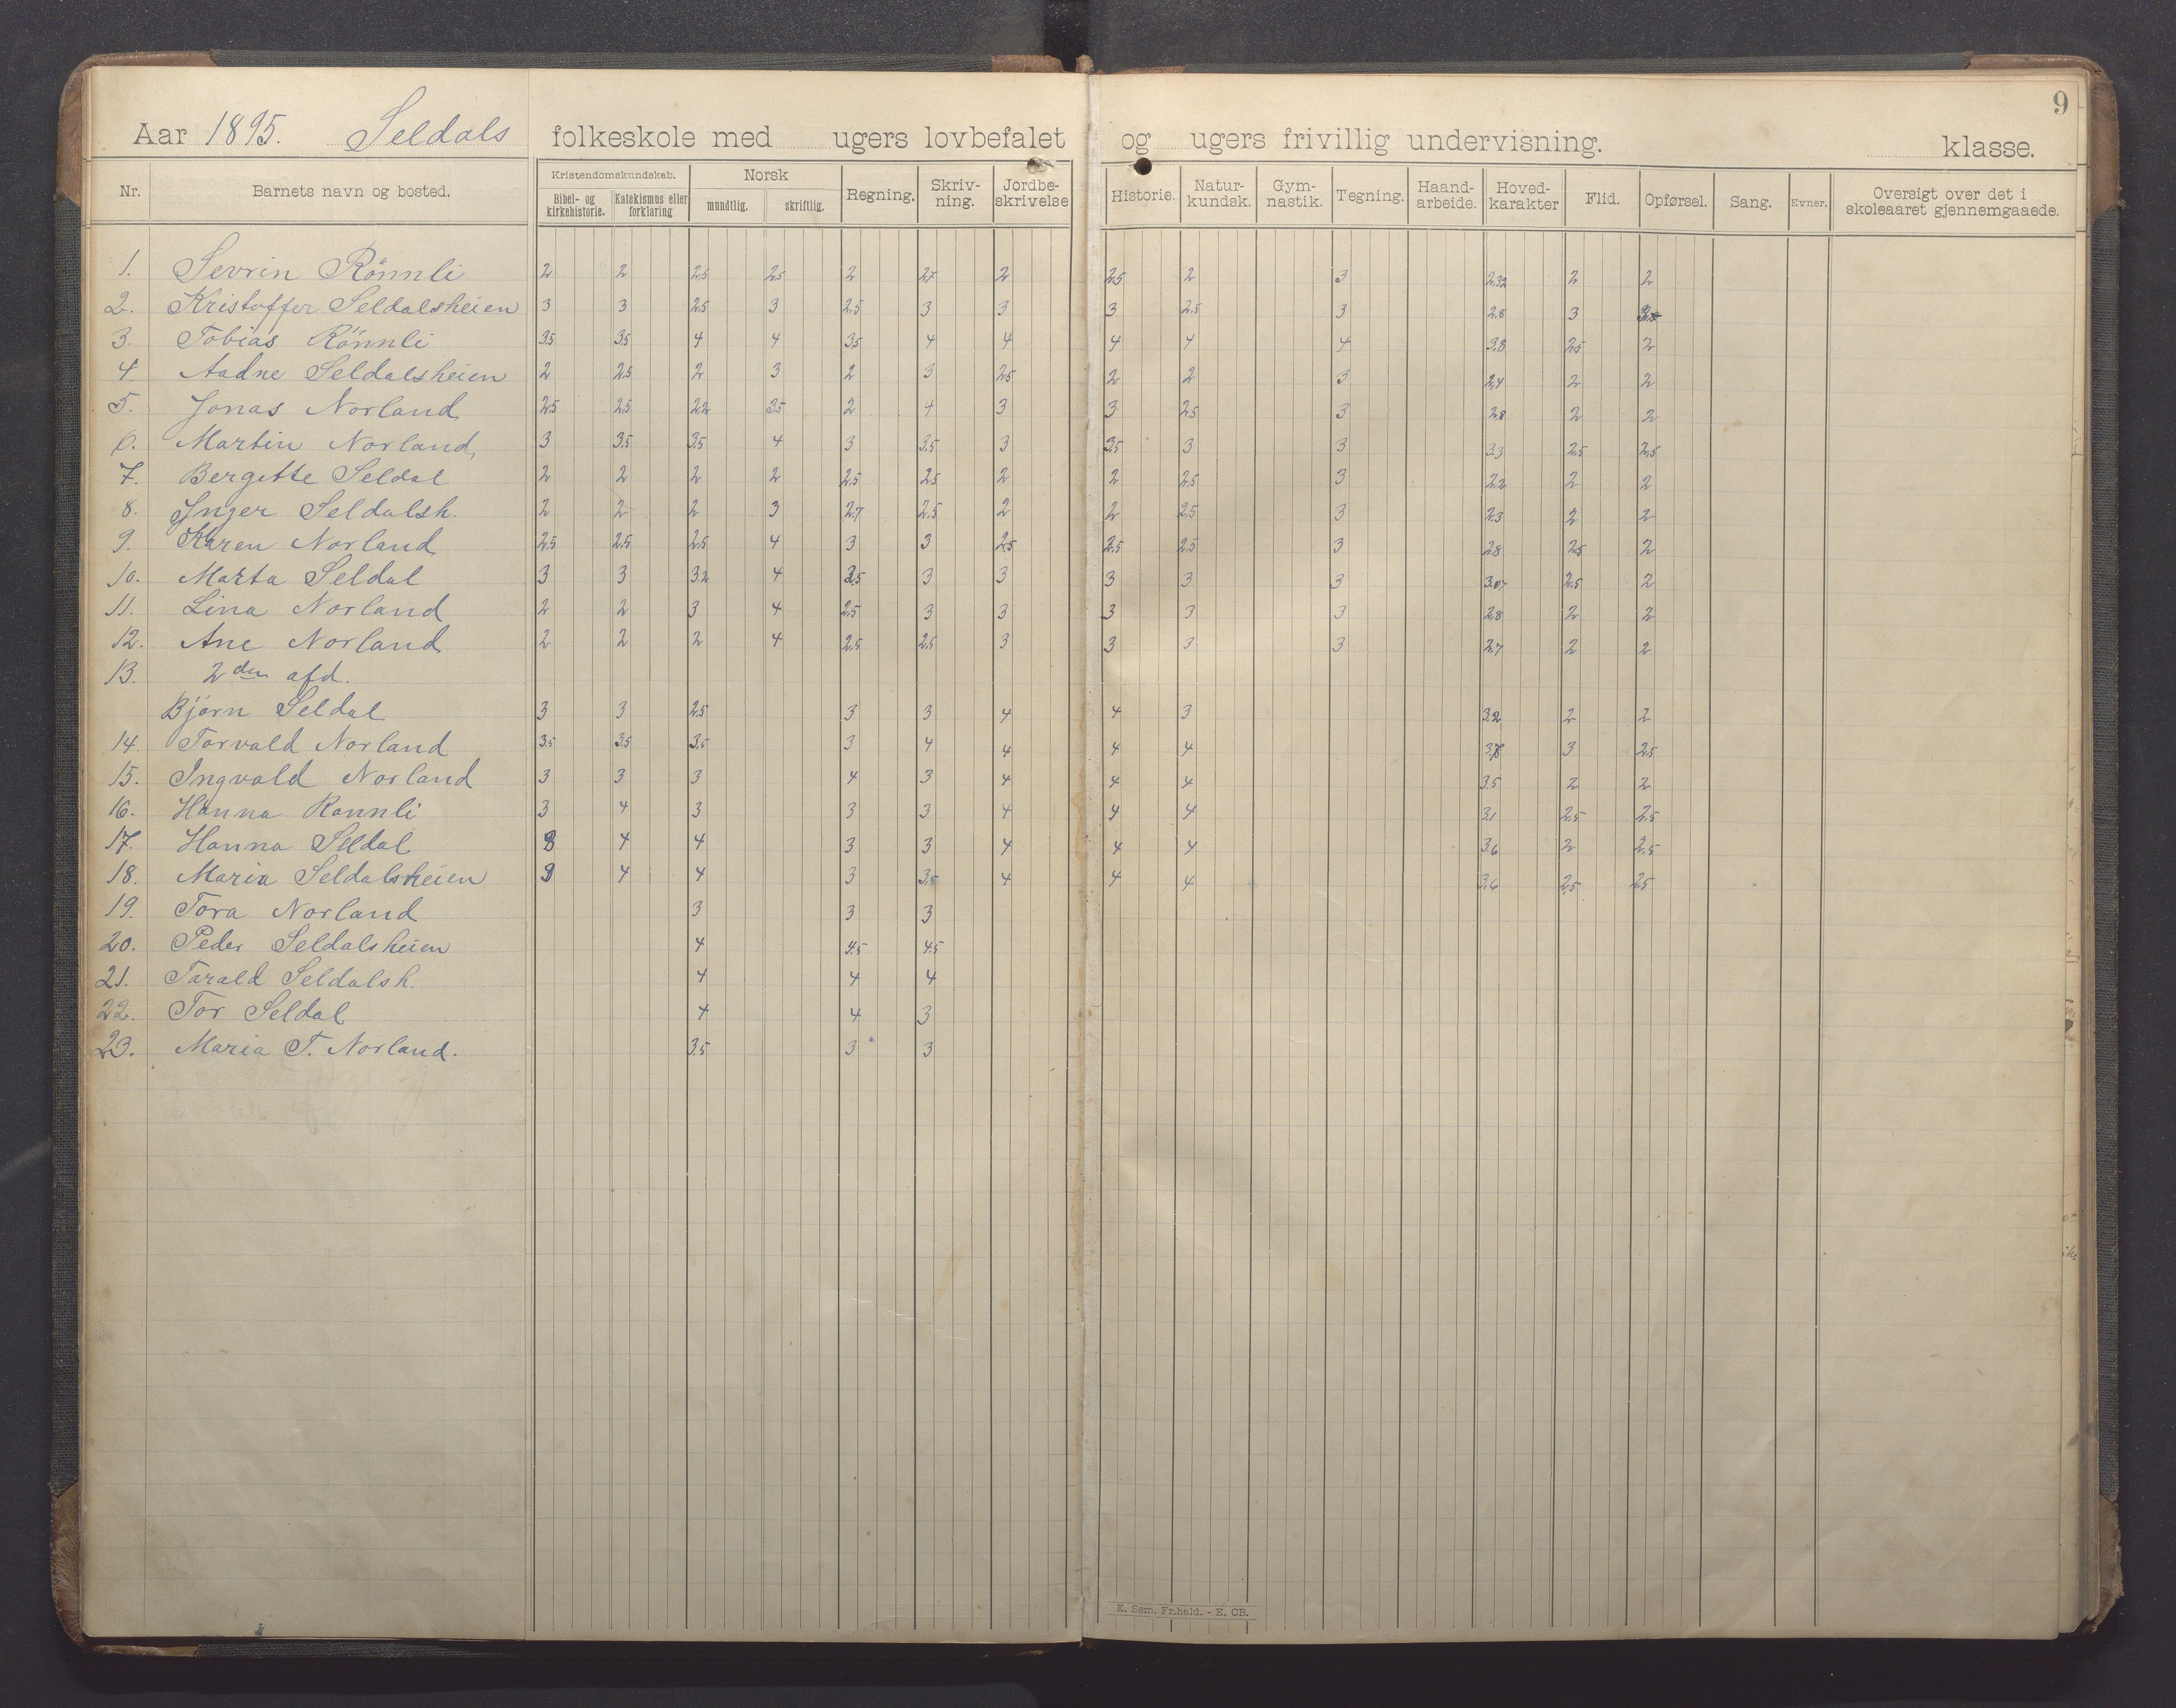 9
Aar 1895. Seldals folkeskole med ugers lovbefalet og ugers frivillig undervisning. klasse.
Nr. Barnets navn og bosted. Kristendomskundskab. Bibel- og kirkehistorie. Katekismus eller forklaring Norsk mundtlig. skriftlig. Regning. Skriv-ning. Jordbe-skrivelse Historie. Natur-kundsk. Gym-nastik. Tegning. Haand-arbeide. Hoved-karakter Flid. Opførsel. Sang. Evner. Oversigt over det i skoleaaret gjennemgaaede.
1. Sevrin Rönnli 2 2 2.5 2.5 2 2.7 2 2.5 2 3 2.32 2 2
2. Kristoffer Seldalsheien 3 3 2.5 3 2.5 3 3 3 2.5 3 2.8 3
3. Tobias Rönnli 3.5 3.5 4 4 3.5 4 4 4 4 4 3.8 2.5 2
4. Aadne Seldalsheien 2 2.5 2 3 2 3 2.5 2 2 3 2.4 2 2
5. Jonas Norland 2.5 2.5 2.2 3.5 2 4 3 3 2.5 3 2.8 2 2
6. Martin Norland, 3 3.5 3.5 4 3 3.5 3 3.5 3 3 3.3 2.5 2.5
7. Bergitte Seldal 2 2 2 2 2.5 2.5 2 2 2.5 3 2.2 2 2
8. Inger Seldalsh. 2 2 2 3 2.7 2.5 2 2 2.5 3 2.3 2 2
9. Karen Norland 2.5 2.5 2.5 4 3 3 2.5 2.5 2.5 3 2.8 2.5 2
10. Marta Seldal 3 3 3.2 4 2.5 3 3 3 3 3 3.07 2.5 2
11. Lina Norland 2 2 3 4 2.5 3 3 3 3 3 2.8 2 2
12. Ane Norland 2 2 2 4 2.5 2.5 3 3 3 3 2.7 2 2
13. 2den afd.
Björn Seldal 3 3 2.5 3 3 4 4 3 3.2 2 2
14. Torvald Norland 3.5 3.5 3.5 3 4 4 4 4 3.8 3 2.5
15. Ingvald Norland 3 3 3 4 3 4 4 4 3.5 2 2
16. Hanna Ronnli 3 4 3 3 3 4 4 4 3.1 2.5 2.5
17. Hanna Seldal 3 4 4 3 3 4 4 4 3.6 2 2.5
18. Maria Seldalsheien 3 4 4 3 3.5 4 4 4 3.6 2.5 2.5
19. Tora Norland 3 3 3
20. Peder Seldalsheien 4 4.5 4.5
21. Tarald Seldalsh. 4 4 4
22. Tor Seldal 4 4 3
23. Maria T. Norland. 3.5 3 3
E. Sem, Fr.hald. - E. CB.